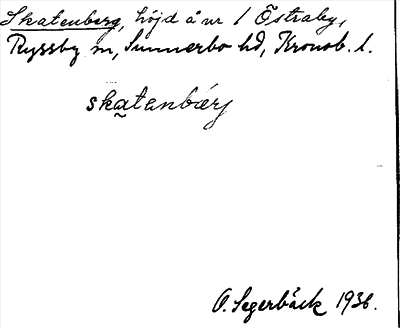 Skatenberg, höjd å nr 1 Östraby,
Ryssby sn, Sunnerbo hd, Kronob. l.
skatenbærj
O. Segerbäck 1936.